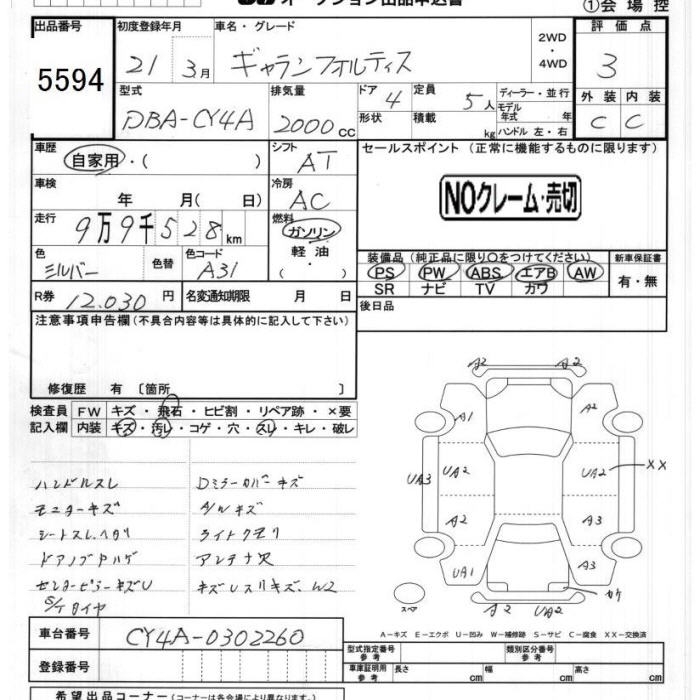 オークション出品申込書 ①会場控
出品番号 初度登録年月 車名・グレード 2WD・4WD 評価点
5594 21 3月 ギャランフォルティス 3
型式 排気量 ドア 定員 ディーラー・並行 外装 内装
DBA-CY4A 2000cc 4 5人 モデル年式 年 C C
形状 積載 kg ハンドル 左・右
車歴 シフト セールスポイント (正常に機能するものに限ります)
自家用・( ) AT
車検 冷房 NOクレーム・売切
年 月( 日) AC
走行 燃料
9万9千528km ガソリン
軽油
・( )
色 色替 色コード 装備品 (純正品に限り○をつけてください) 新車保証書
シルバー A31 PS PW ABS エアB AW 有・無
SR ナビ TV カワ
R券 12.030円 名変通知期限 月 日 後日品
注意事項申告欄 (不具合内容等は具体的に記入して下さい)
修復歴 有 〔箇所 〕
検査員 FW キズ・飛石・ヒビ割・リペア跡・×要
記入欄 内装 キズ・汚レ・コゲ・穴・スレ・キレ・破レ
ハンドルスレ Dミラーカバーキズ
モニターキズ A/Wキズ
シートスレ.ヘタリ ライトクモリ
ドアノブアハゲ アンテナ欠
センターピラーキズU キズUスリキズ.W2
S/Tタイヤ
A2 A2
A1 A2
UA3 UA2 UA2 XX
A2 A3
UA1 A3
カケ
スペア A2 UA2
A-キズ E-エクボ U-凹み W-補修跡 S-サビ C-腐食 XX-交換済
車台番号 CY4A-0302260
登録番号
型式指定番号 参考 類別区分番号 参考
車庫証明用 参考 長さ cm 幅 cm 高さ cm
希望出品コーナー (コーナーは各会場により異なります)